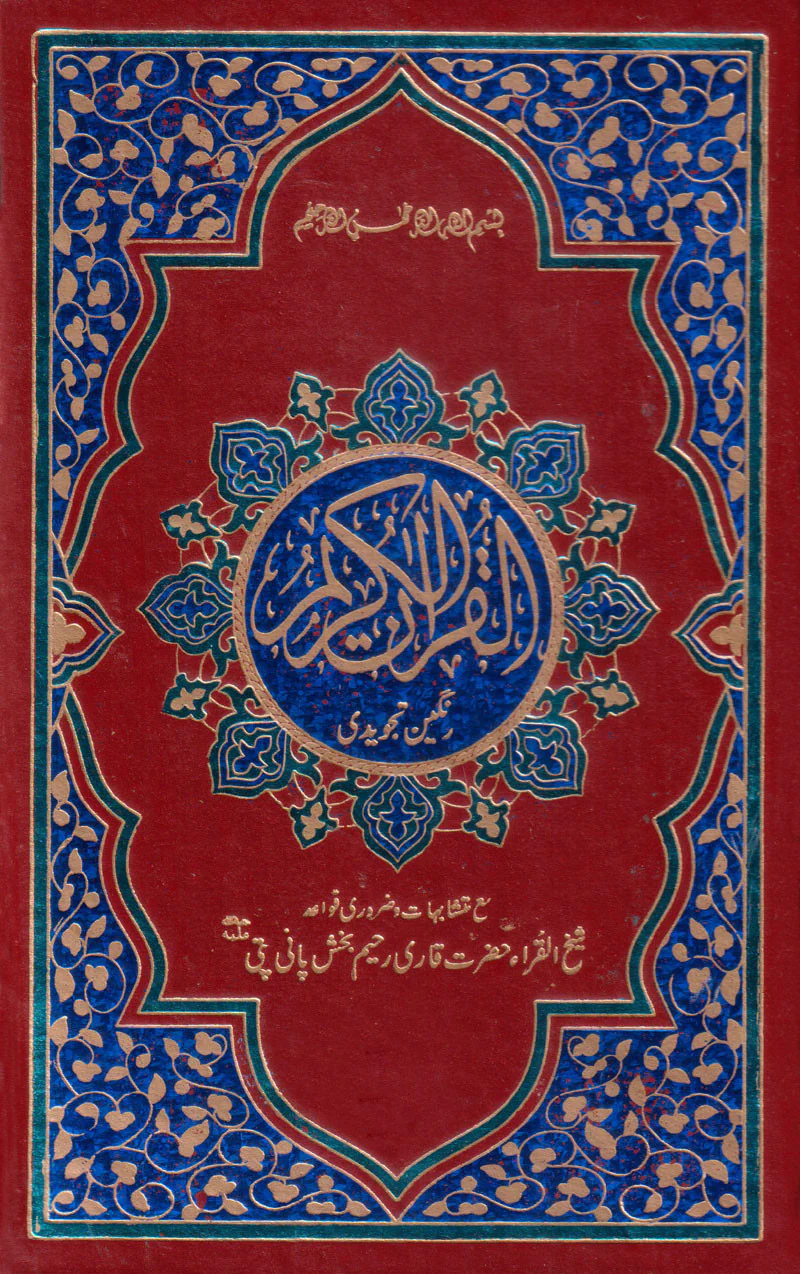 بسم الله الرحمن الرحیم
القرآن الکریم
رنگین تجویدی
مع متشابہات وضروری قواعد
شیخ القراء حضرت قاری رحیم بخش پانی پتی رحمۃ اللہ علیہ